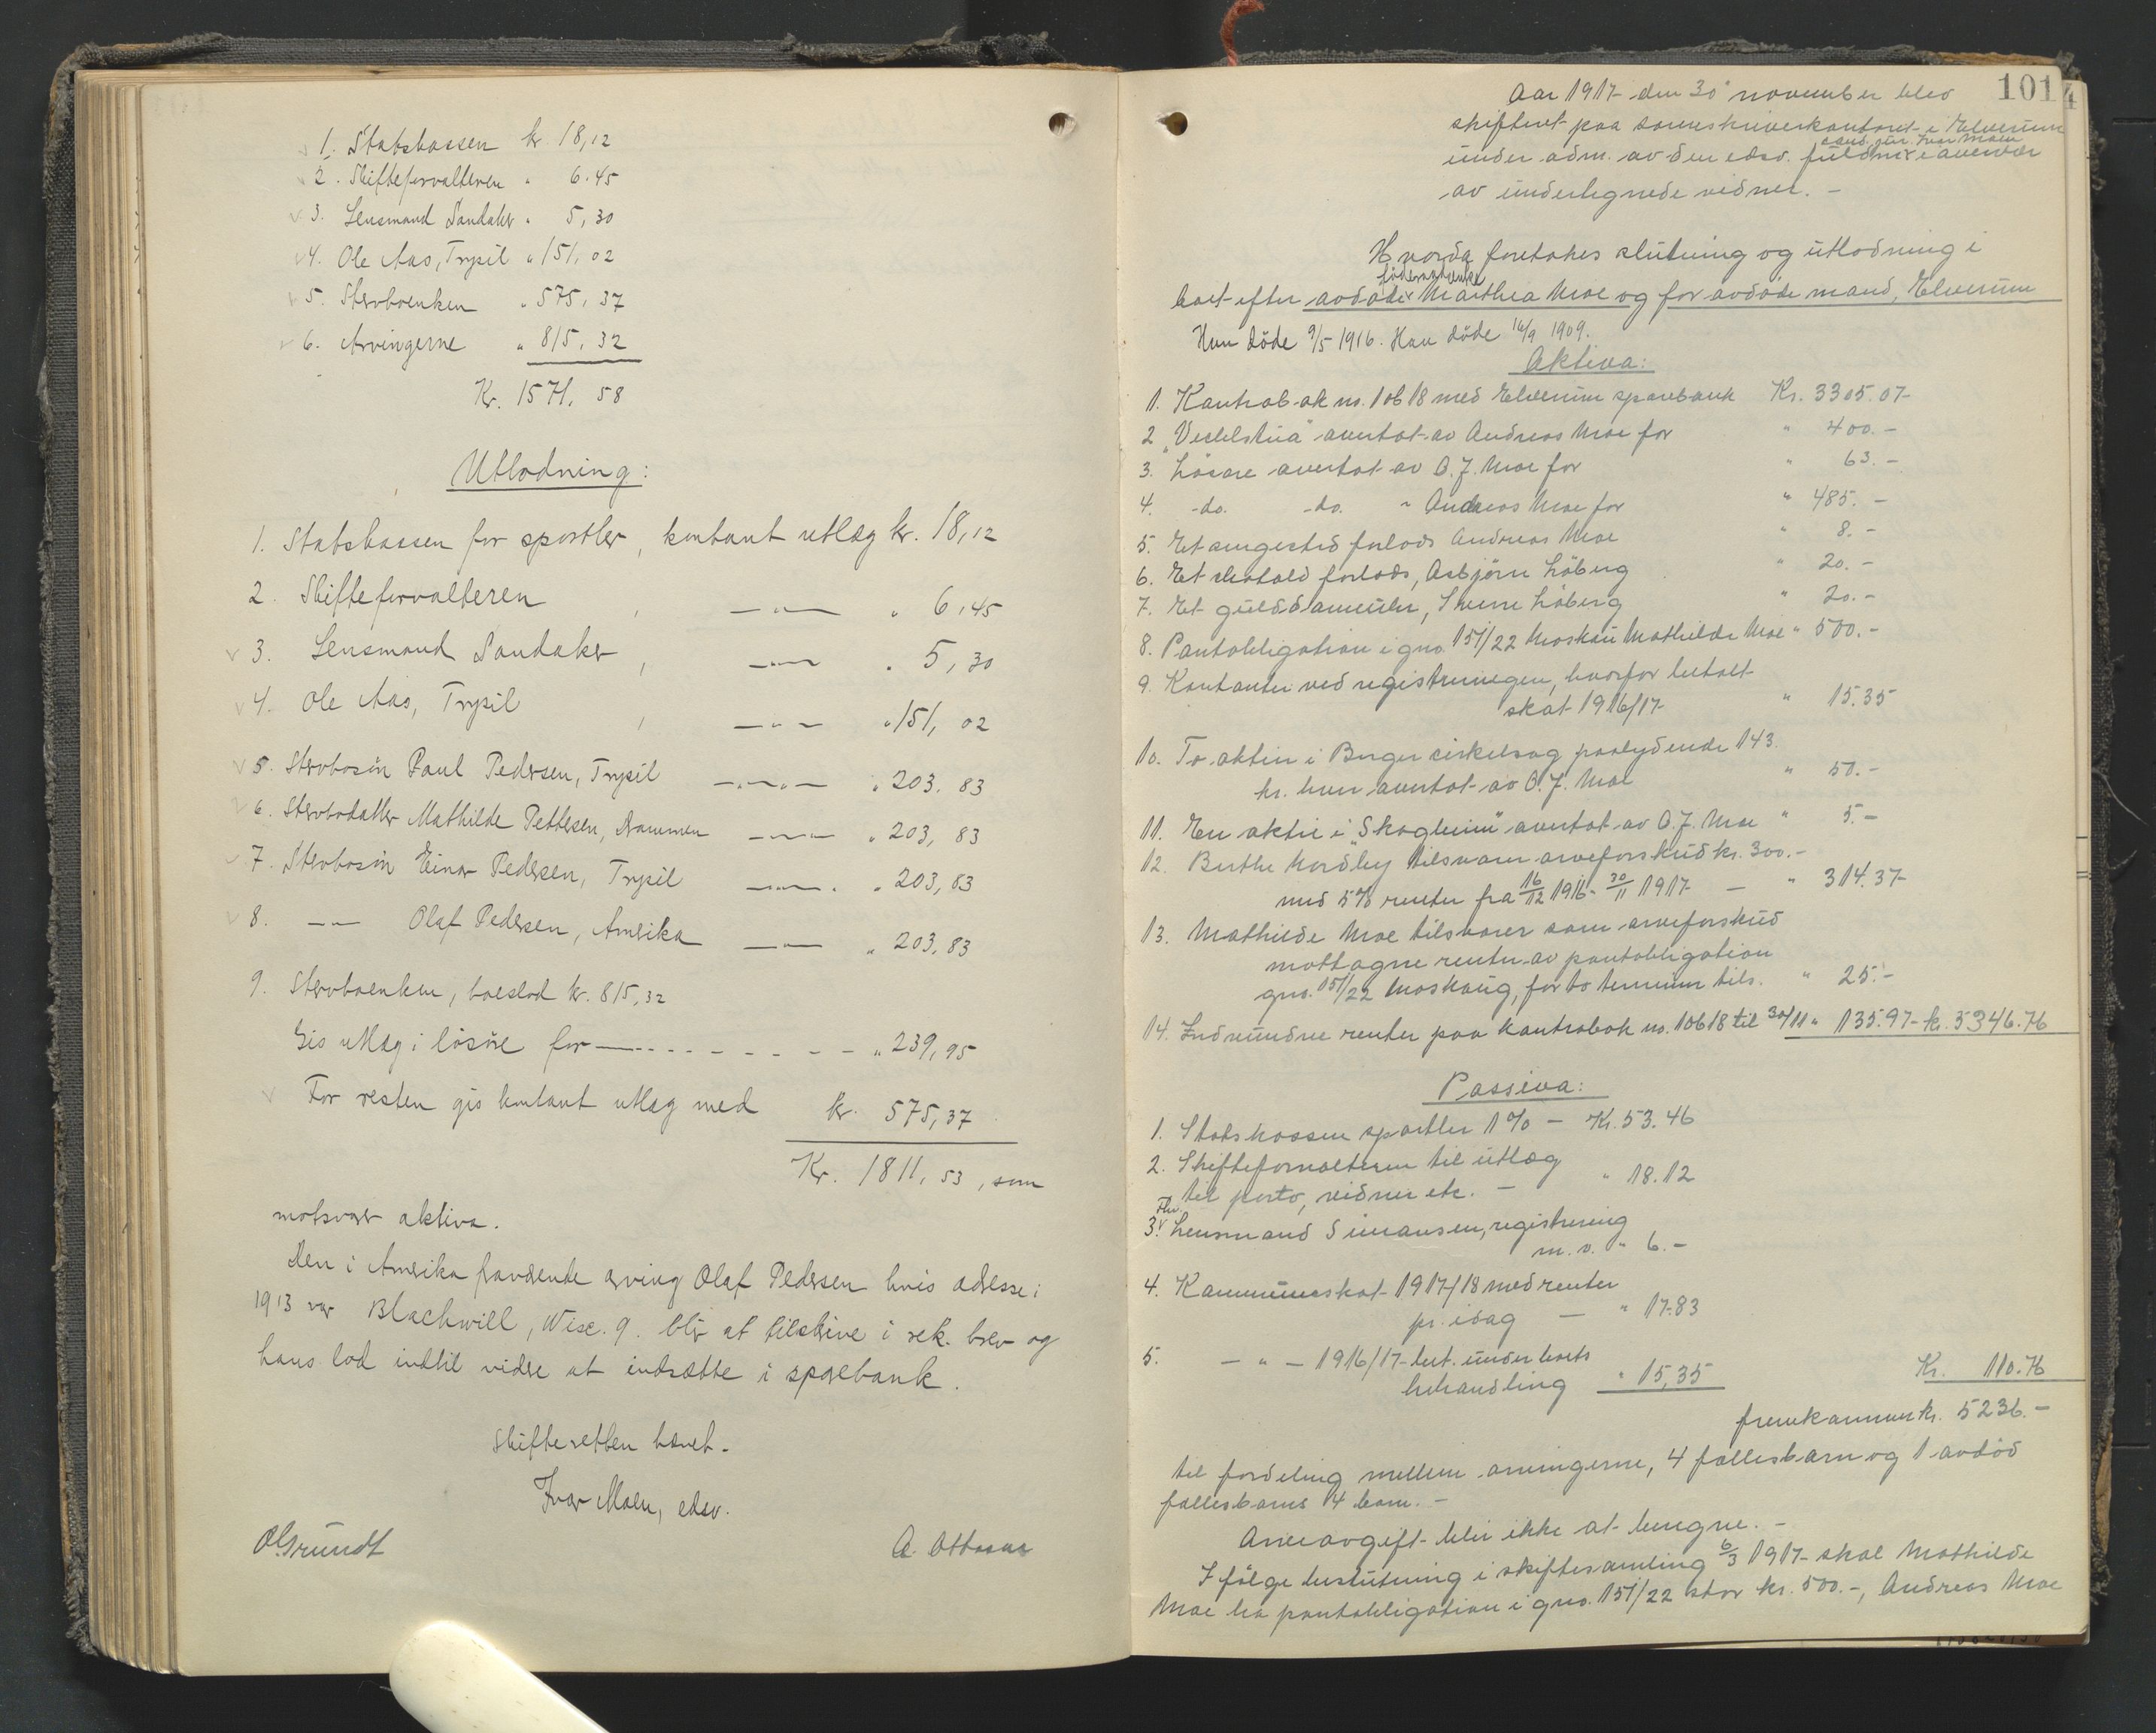 1. Statskassen kr. 18,12
2. Skifteforvalteren " 6.45
3. Lensmand Sandaker " 5,30
4. Ole Aas, Trysil " 151,02
5. Stervboenken " 575,37
6. Arvingerne " 815,32
Kr. 1571,58
Utlodning:
1. Statskassen for sportler, kontant utlæg kr. 18,12
2. Skifteforvalteren , —"— " 6,45
3. Lensmand Sandaker , —"— " 5,30
4. Ole Aas, Trysil , —"— " 151,02
5. Stervbosön Paul Pedersen, Trysil —"—"— " 203.83
6. Stervbodatter Mathilde Pettersen, Drammen —"— " 203,83
7. Stervbosön Einar Pedersen, Trysil —"— " 203,83
8. —"— Olaf Pedersen, Amerika —"— " 203,83
9. Stervboenken, boeslod kr. 815,32
Gis utlæg i lösöre for — " 239,95
For resten gis kontant utlæg med kr. 575,37
Kr. 1811,53, som
motsvarer aktiva.
Den i Amerika fraværende arving Olaf Pedersen hvis adresse i
1913 var Blackwill, Wisc. 9. blir at tilskrive i rek. brev og
hans lod indtil videre at indsætte i sparebank.
Skifteretten hævet.
Ivar Moen, edsv.
O. Grundt
A. Ottosen
101
Aar 1917 den 30' november blev
skifteret paa sorenskriverkontoret i Elverum
cand. jur. Ivar Moen
under adm. av den edsv. fuldm. i overvær
av undertegnede vidner. -
Hvorda foretokes slutning og utlodning i
föderaadsenke
boet efter avdöde Marthea Moe og for avdöde mand, Elverum
Hun döde 9/5 1916. Han döde 16/9 1909.
Aktiva:
1. Kontrabok no. 10618 med Elverum sparebank Kr. 3305.07
2. "Veslestua" overtat av Andreas Moe for " 400.-
3. Lösöre overtat av O. J. Moe for " 63.-
4. -do. -do. " Andreas Moe for " 485.-
5. Et sengested forlods Andreas Moe " 8.-
6. Et skatold forlods, Asbjörn Löberg " 20.-
7. Et gulddameur, Sverre Löberg " 20.-
8. Pantobligation i gno. 151/22 Moskau Mathilde Moe " 500.-
9. Kontanter ved registreringen, hvorfor betalt
skat 1916/17 " 15.35
10. To aktier i Berger cirkelsag paalydende 143
kr. hver overtat av O. J. Moe " 50.-
11. En aktie i "Skogheim" overtat av O. J. Moe " 5.-
12. Berthe Nordby tilsvarer arveforskud kr. 300.-
med 5% renter fra 16/12 1916 - 30/11 1917 — " 314.37
13. Mathilde Moe tilsvarer som arveforskud
mottagne renter av pantobligation
gno. 151/22 Moskaug, for to terminer tils. " 25.-
14. Indvundne renter paa kontrabok no. 10618 til 30/11 " 135.97 - kr. 5346.76
Passiva:
1. Statskassen sportler 1% - Kr. 53.46
2. Skifteforvalteren til utlæg
til porto, vidner etc. - " 18.12
3. Fhv. Lensmand Simensen, registrering
m. v. " 6.-
4. Kommuneskat 1917/18 med renter
pr. idag — " 17.83
5. — " — 1916/17 bet. under boets
behandling " 15,35 Kr. 110.76
fremkommer kr. 5236.-
til fordeling mellem arvingerne, 4 fællesbarn og 1 avdöd
fællesbarns 4 barn. -
Arveavgift blir ikke at beregne. -
I fölge beslutning i skiftesamling 6/3 1917 skal Mathilde
Moe ha pantobligation i gno. 151/22 stor kr. 500.-, Andreas Moe